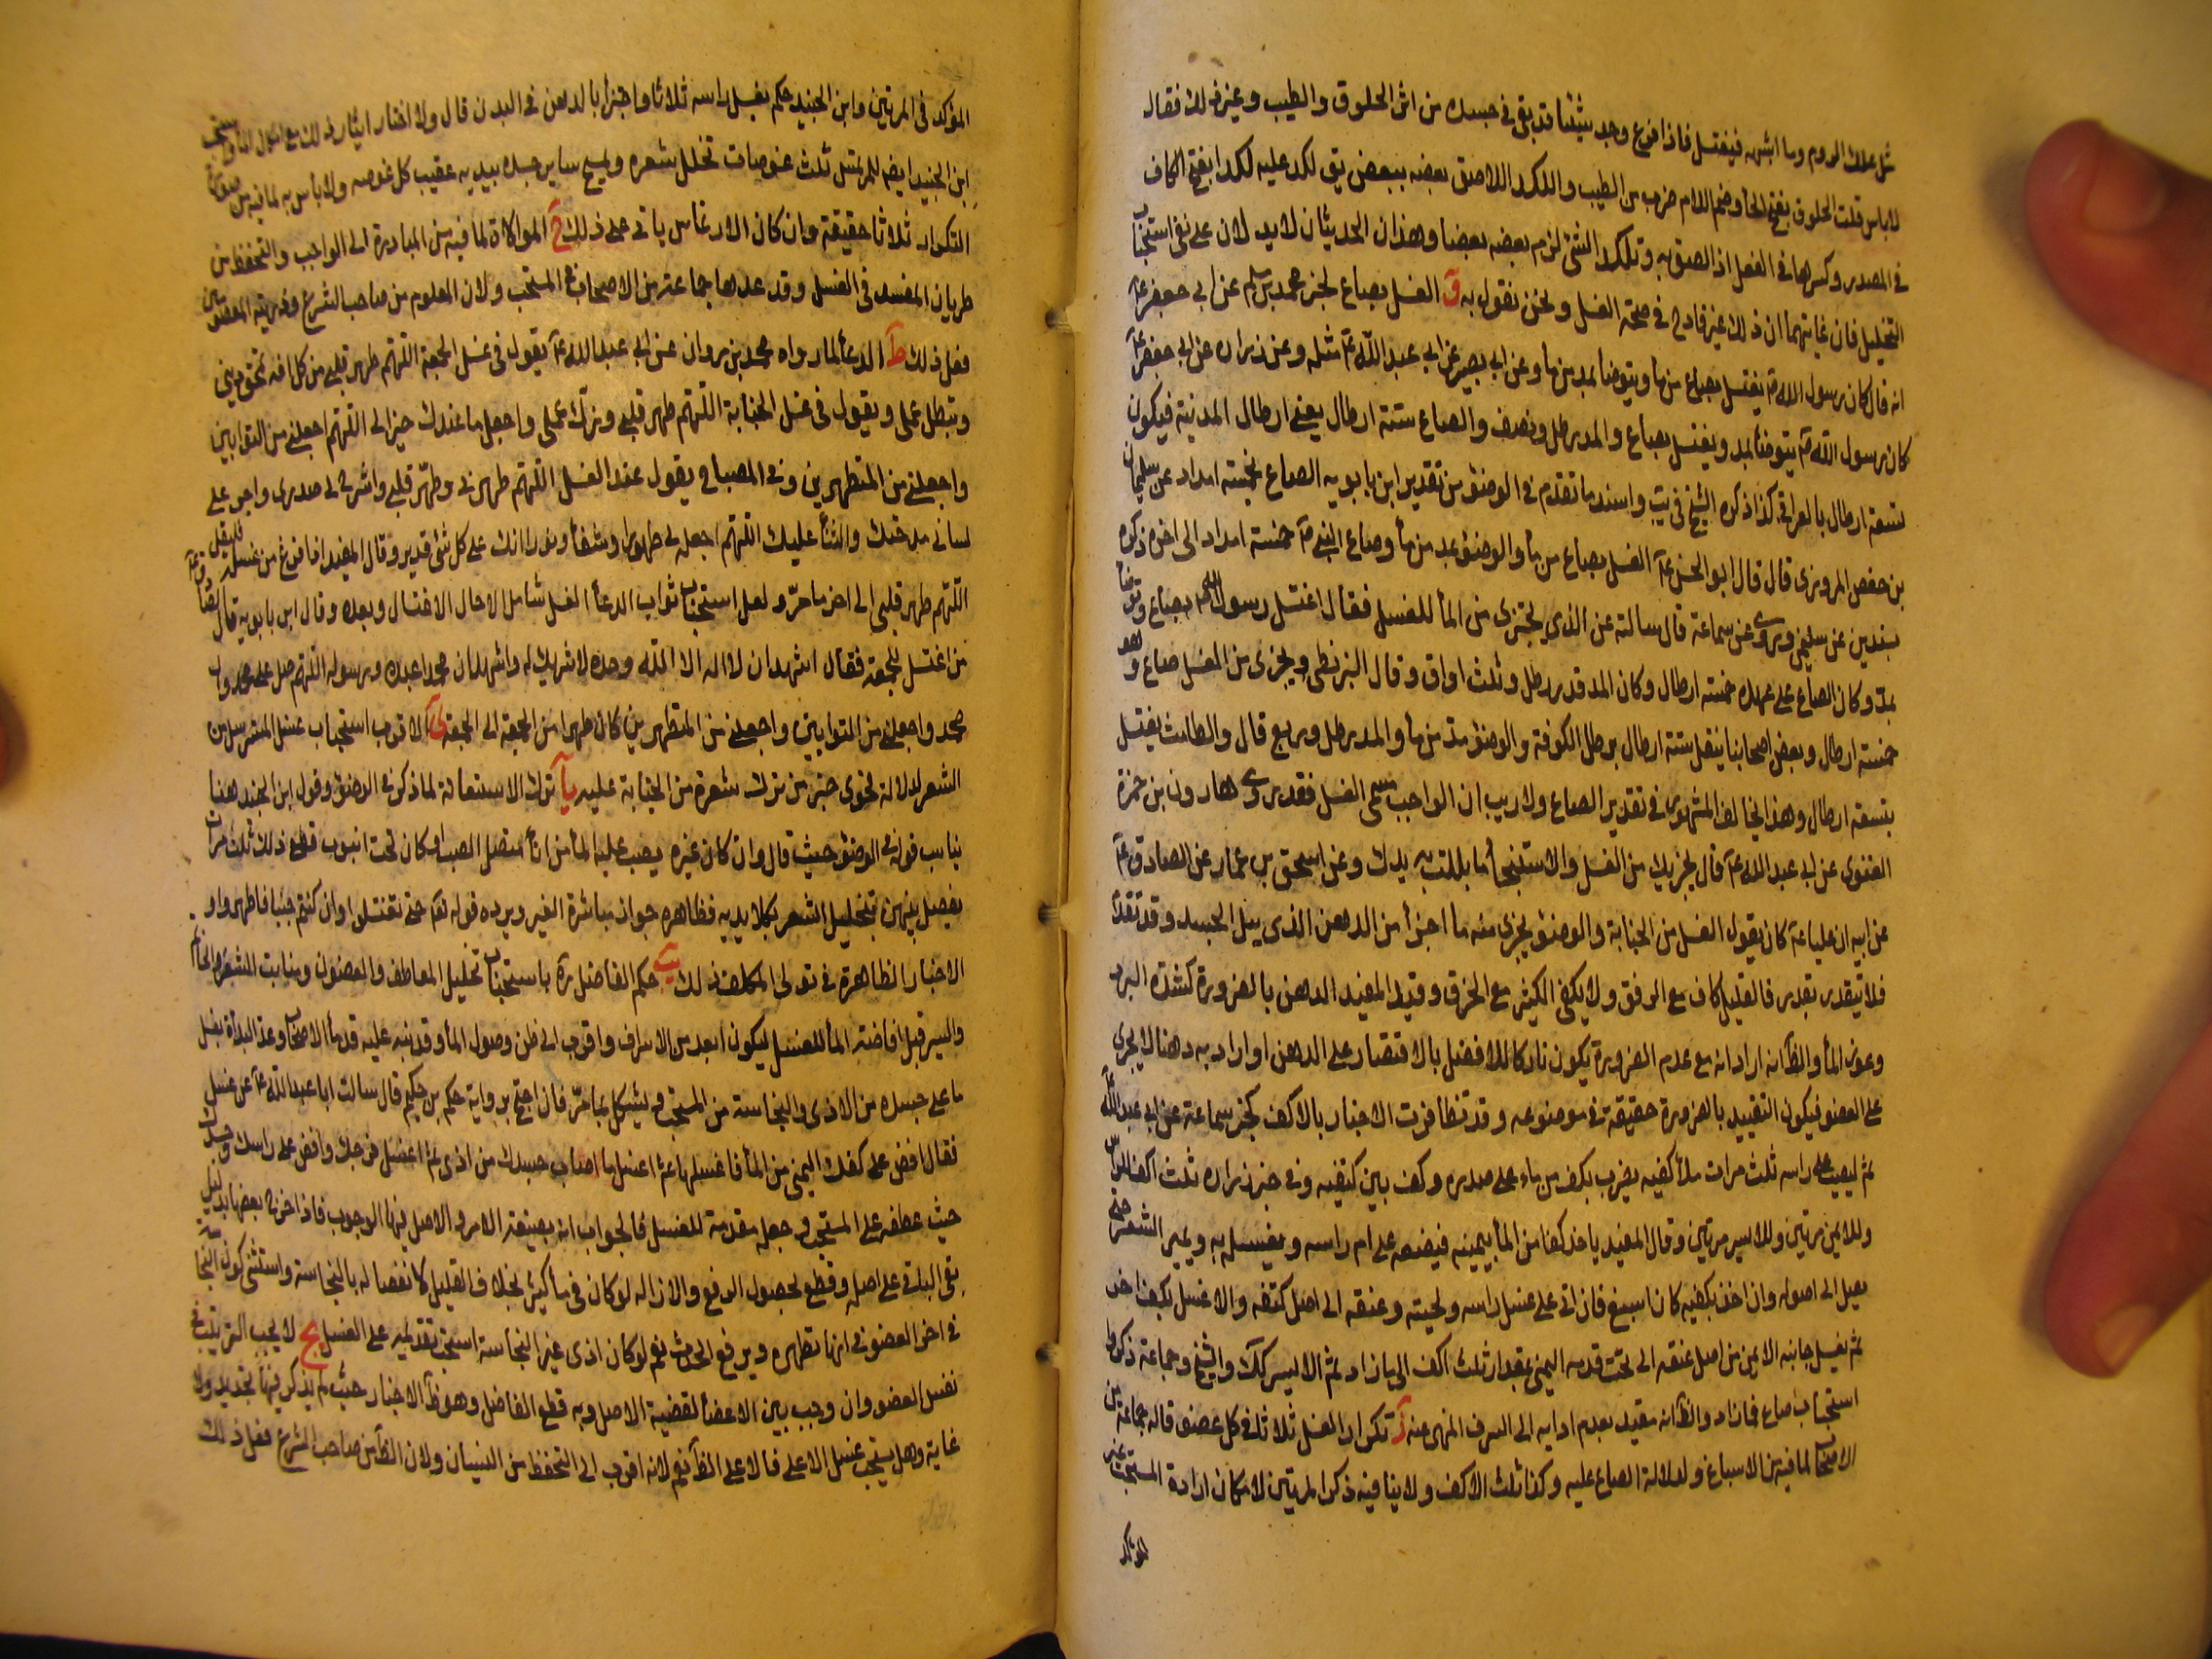 مثل علك الروم وما اشبهه فيغتسل فاذا فرغ وجد شيئا قد بقي في جسده من اثر الخلوق والطيب وغيره لك فقال
لا باس قلت الخلوق بفتح الخاء وضم اللام ضرب من الطيب واللكد اللاصق بعضه ببعض يق لكد عليه لكدا بفتح الكاف
في المصدر وكسرها في الفعل اذا لصق به وتلكد الشئ لزم بعضه بعضا وهذان الحديثان لا يدلان على نفي استحباب
التخليل فان غايتهما ان ذلك غير قادح في صحة الغسل ونحن نقول به و الغسل بصاع لخبر محمد بن مسلم عن ابي جعفر ع
انه قال كان رسول الله ص يغتسل بصاع من ماء ويتوضا بمد من ماء وعن ابي بصير عن ابي عبد الله ع مثله وعن زرارة عن ابي جعفر ع
كان رسول الله ص يتوضأ بمد ويغتسل بصاع والمد رطل ونصف والصاع ستة ارطال يعني ارطال المدينة فيكون
تسعة ارطال بالعراقي كذا ذكره الشيخ في يب واسند ما تقدم في الوضوء من تقدير ابن بابويه الصاع بخمسة امداد عن سليمان
بن حفص المروزي قال قال ابو الحسن ع الغسل بصاع من ماء والوضوء بمد من ماء وصاع النبي ص خمسة امداد الى اخره ذكره
بسندين عن سليمن وروى عن سماعة قال سالته عن الذي يجزي من الماء للغسل فقال اغتسل رسول الله ص بصاع وتوضأ
بمد وكان الصاع على عهده خمسة ارطال وكان المد قدر رطل وثلث اواق وقال البزنطي ويجزي من الغسل صاع وهو
خمسة ارطال وبعض اصحابنا ينقل ستة ارطال برطل الكوفة والوضوء مد من ماء والمد رطل وربع قال والطامث يغتسل
بتسعة ارطال وهذا يخالف المشهور في تقدير الصاع ولا ريب ان الواجب مسمى الغسل فقد روى هارون بن حمزة
الغنوي عن ابي عبد الله ع قال يجزيك من الغسل والاستنجاء ما بللت به يدك وعن اسحق بن عمار عن الصادق ع
عن ابيه ان عليا ع كان يقول الغسل من الجنابة والوضوء يجزي منه ما اجزأ من الدهن الذي يبل الجسد وقد تقدم
فلا يتقدر بقدر فالقليل كاف مع الرفق ولا يكفي الكثير مع الخرق وقيد المفيد الدهن بالضرورة كشدة البرد
وعوز الماء والظ انه اراد انه مع عدم الضرورة يكون تاركا للافضل بالاقتصار على الدهن او اراد به دهنا لا يجري
على العضو فيكون التقييد بالضرورة حقيقة في موضوعه وقد تظافرت الاخبار بالاكف كخبر سماعة عن ابي عبد الله ع
ثم ليصب على راسه ثلث مرات ملأ كفيه يضرب بكف من ماء على صدره وكف بين كتفيه وفي خبر زرارة ثلث اكف للراس
وللايمن مرتين وللايسر مرتين وقال المفيد ياخذ كفا من الماء بيمينه فيضعه على ام راسه ويغسله به ويميز الشعر حتى
يصل الى اصوله وان اخذ بكفيه كان اسبغ فان اتى على غسل راسه ولحيته وعنقه الى اصل كتفه والا غسل بكف اخر
ثم يغسل جانبه الايمن من اصل عنقه الى تحت قدمه اليمنى بمقدار ثلث اكف الى ما زاد ثم الايسر كك والشيخ وجماعة ذكروا
استحباب صاع فما زاد والظ انه مقيد بعدم ادايه الى السرف المنهى عنه ز تكرار الغسل ثلاثا في كل عضو قاله جماعة من
الاصحاب لما فيه من الاسباغ ولدلالة الصاع عليه وكذا ثلث الاكف ولا ينافيه ذكر المرتين لامكان ارادة المستحب غير
المؤكد
المؤكد في المرتين وابن الجنيد حكم بغسل راسه ثلاثا واجتزأ بالدهن في البدن قال ولا اختار ايثار ذلك مع امكان الماء واستحب
ابن الجنيد ايضا للمرتمس ثلث غوصات تخلل شعره ويمسح ساير جسده بيديه عقيب كل غوصة ولا باس به لما فيه من صورة
التكرار ثلاثا حقيقة وان كان الارتماس ياتي على ذلك ح الموالاة لما فيه من المبادرة الى الواجب والتحفظ من
طريان المفسد في الغسل وقد عدها جماعة من الاصحاب في المستحب ولان المعلوم من صاحب الشرع وذريته المعصومين
فعل ذلك ط الدعأ لما رواه محمد بن مروان عن ابي عبد الله ع يقول في غسل الجمعة اللهم طهر قلبي من كل افة تمحق ديني
وتبطل عملي ويقول في غسل الجنابة اللهم طهر قلبي وزك عملي واجعل ما عندك خيرا لي اللهم اجعلني من التوابين
واجعلني من المتطهرين وفي المصباح يقول عند الغسل اللهم طهرني وطهر قلبي واشرح لي صدري واجر على
لساني مدحتك والثنأ عليك اللهم اجعله لي طهورا وشفأ ونورا انك على كل شئ قدير وقال المفيد اذا فرغ من غسله فليقل
اللهم طهر قلبي الى اخر ما مر ولعل استحباب ثواب الدعأ الغسل شامل لحال الاغتسال وبعده وقال ابن بابويه قال الصادق ع
من اغتسل للجمعة فقال اشهد ان لا اله الا الله وحده لا شريك له واشهد ان محمدا عبده ورسوله اللهم صل على محمد وال
محمد واجعلني من التوابين واجعلني من المتطهرين كان طهرا من الجمعة الى الجمعة ي الاقرب استحباب غسل المسترسل من
الشعر لدلالة فحوى خبر من ترك شعرة من الجنابة عليه يا ترك الاستعانة لما ذكر في الوضوء وقول ابن الجنيد هنا
يناسب قوله في الوضوء حيث قال وان كان غيره يصب عليه الماء من اناء متصل الصب او كان تحت انبوب قطع ذلك ثلث مرات
يفصل بينهن بتخليل الشعر بكلا يديه فظاهره جواز مباشرة الغير ويرده قوله تعا حتى تغتسلوا وان كنتم جنبا فاطهروا و
الاخبار الظاهرة في تولى المكلف ذلك يب حكم الفاضل ره باستحباب تخليل المعاطف والغضون ومنابت الشعر والخاتم
والسير قبل افاضة الماء للغسل ليكون ابعد من الاسراف واقرب الى ظن وصول الماء وقد نبه عليه قدماء الاصحاب وعد البدأة بغسل
ما على جسده من الاذى والنجاسة من المستحب ويشكل بما مر فان احتج برواية حكم بن حكيم قال سالت ابا عبد الله ع عن غسل
فقال افض على كفك اليمنى من الماء فاغسلها ثم اغسل ما اصاب جسدك من اذى ثم اغسل فرجك وافض على راسك وجسدك
حيث عطفه على المستحب وجعله مقدمة للغسل فالجواب انه بصيغة الامر والاصل فيها الوجوب فاذا خرج بعضها بدليل
بقى الباقي على اصله وقطع بحصول الرفع والازاله لو كان في ماء كثير بخلاف القليل لانفصاله بالنجاسة واستثنى كون النجاسة
في اخر العضو فانها تطهره ويرفع الحدث نعم لو كان اذى غير النجاسة استحب تقديمه على الغسل يج لا يجب الترتيب في
نفس العضو وان وجب بين الاعضأ لقضية الاصل وبه قطع الفاضل وهو ظ الاخبار حيث لم يذكر فيها تحديد ولا
غاية وهل يستحب غسل الاعلى فالاعلى الظ نعم لانه اقرب الى التحفظ من النسيان ولان الظ من صاحب الشرع فعل ذلك